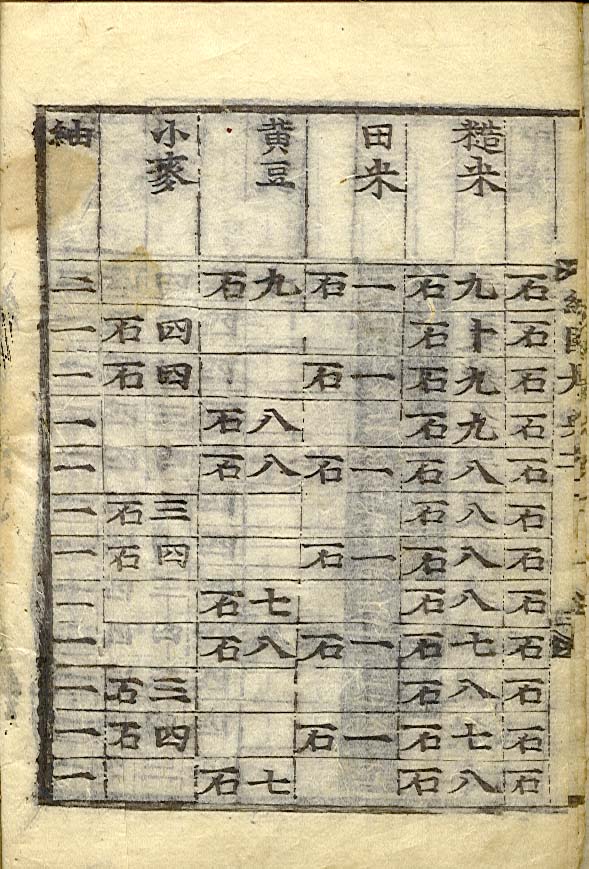 經國大典卷
石 石 石 石 石 石 石 石 石 石 石 石
糙米 九石 十石 九石 九石 八石 八石 八石 八石 七石 八石 七石 八石
田米 一石 一石 一石 一石 一石 一石
黃豆 九石 八石 八石 七石 八石 七石
小麥 四石 四石 三石 四石 三石 四石
紬 二 一 一 一 一 一 一 一 一 一 一